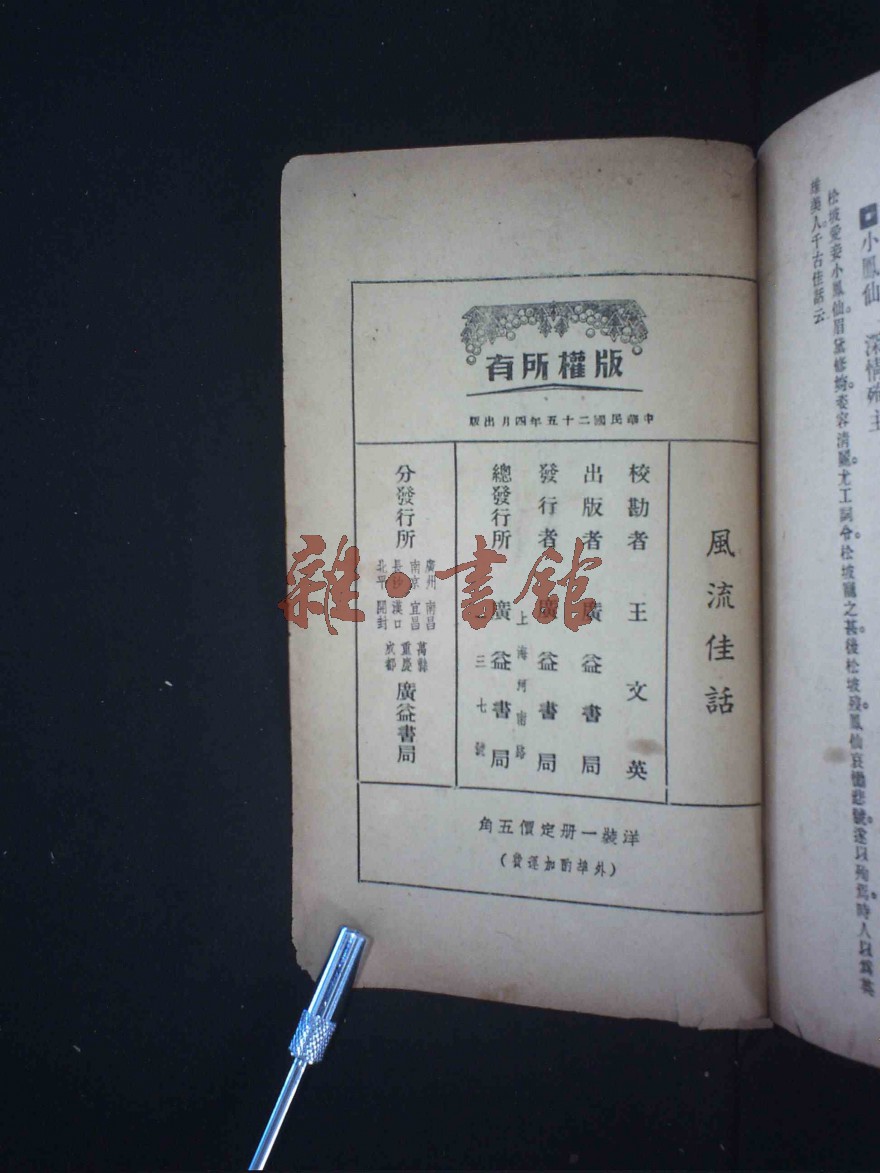 小鳳仙 深情殉主
松坡愛妾小鳳仙。眉黛修綺。姿容清麗。尤工詞令。松坡寵之甚。後松坡歿。鳳仙哀慟悲號。遂以殉焉。時人以爲英
雄美人。千古佳話云
版權所有
中華民國二十五年四月出版
風流佳話
校勘者 王文英
出版者 廣益書局
發行者 廣益書局
總發行所 廣益書局
上海河南路
三七號
分發行所
廣州 南昌
南京 宜昌
長沙 漢口
北平 開封
萬縣
重慶
成都
廣益書局
洋裝一册定價五角
(外埠酌加運費)
雜·書館